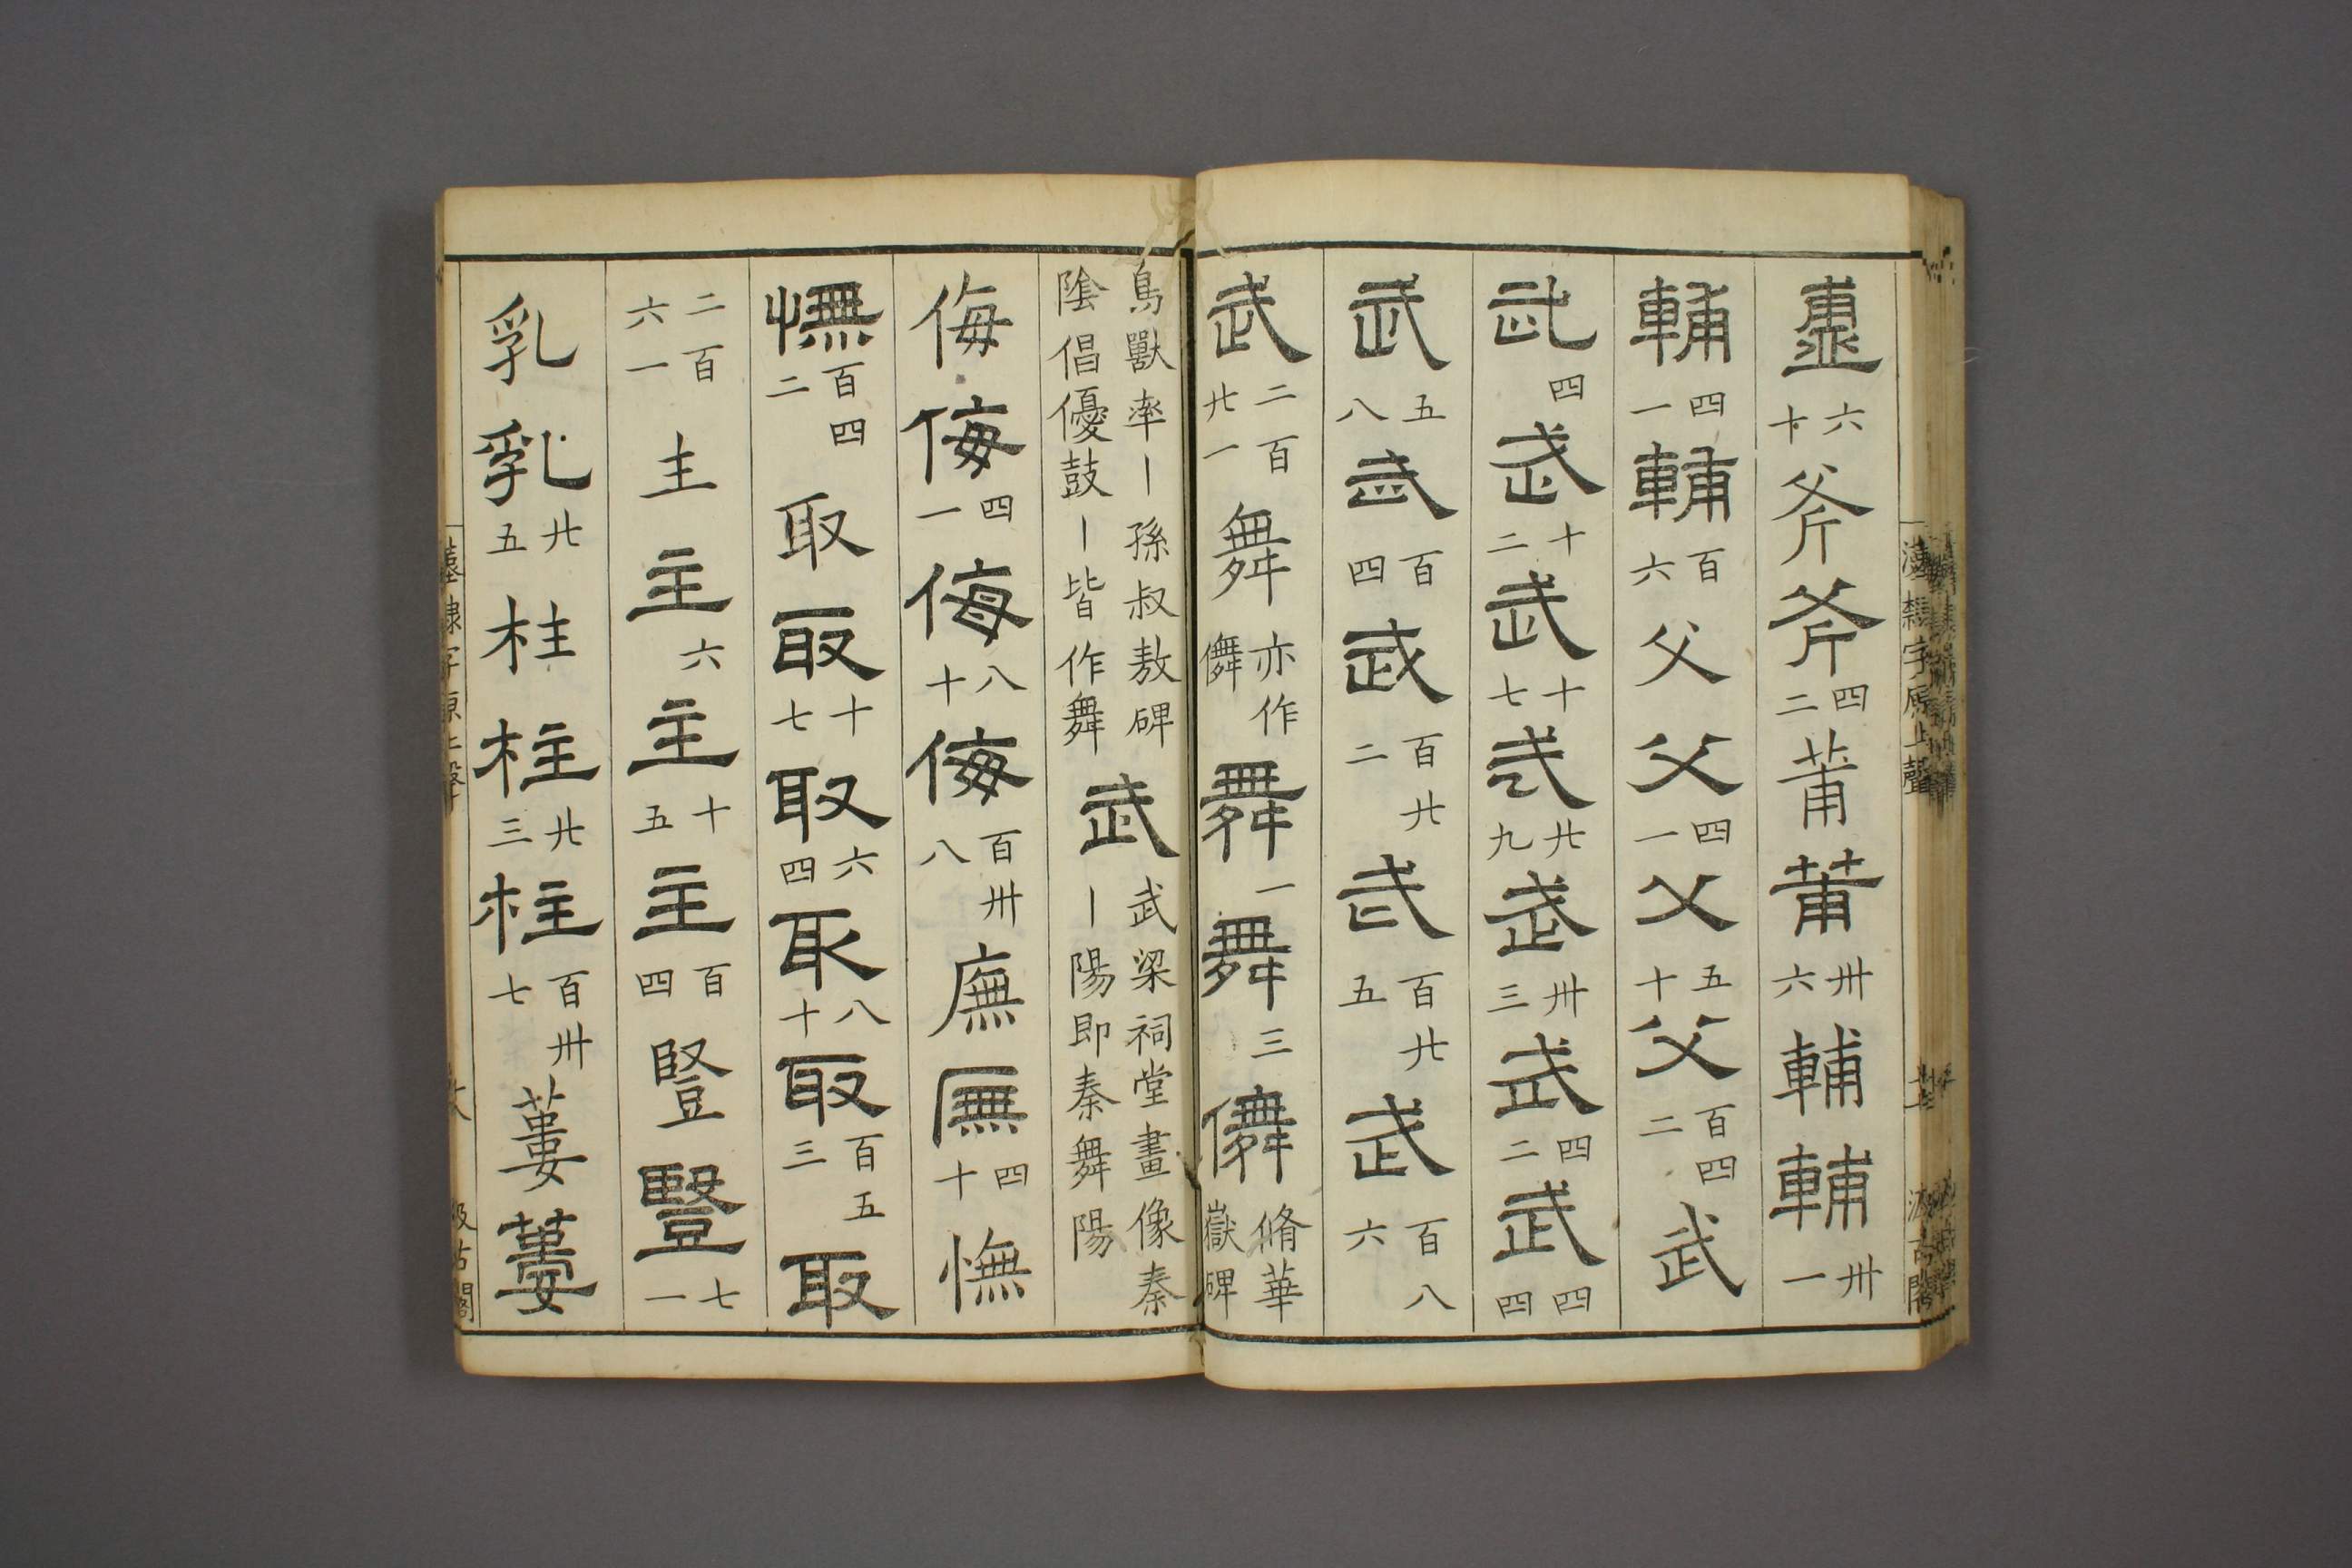 漢隸字原上聲 汲古閣
六十斧斧四二莆莆卅六輔輔卅一
輔四一輔百六父父四一父五十父百四二武
武四武十二武十七武廿九武卅三武四二武四四
武五八武百四武百廿二武百廿五武百八六
武二百廿一舞亦作儛舞一舞三儛脩華嶽碑
鳥獸率丨孫叔敖碑陰倡優鼓丨皆作舞武武梁祠堂畫像秦丨陽即秦舞陽
侮侮四一侮八十侮百卅八廡廡四十憮
憮百四二取取十七取六四取八十取百五三取
二百六一主主六主十五主百四豎豎七一
乳乳廿五柱柱廿三柱百卅七蔞蔞
漢隸字原上聲 六 汲古閣